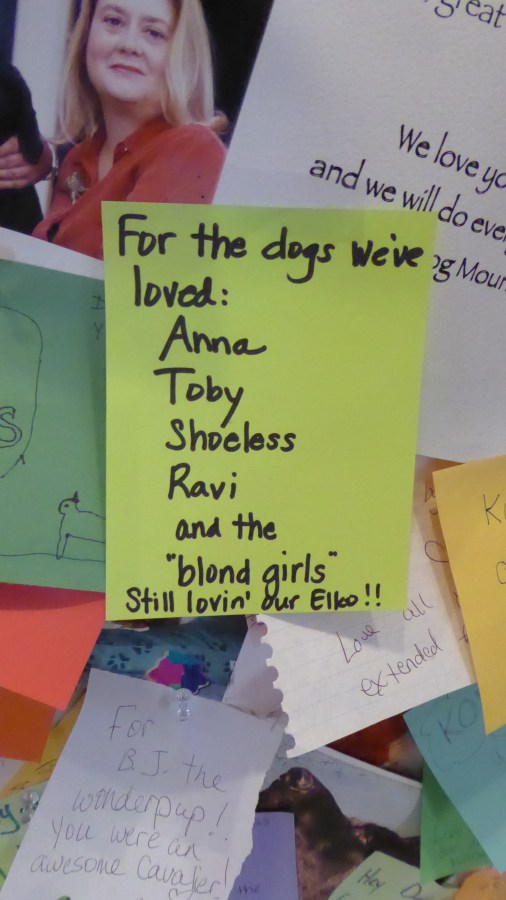 great
We love
and we will do
For the dogs we've
loved:
Anna
Toby
Shoeless
Ravi
and the
"blond girls"
Still lovin' our Elko!!
Love all
extended
KO
For
B.J. the
wonderpup!
You were an
awesome Cavalier!
me
Hey